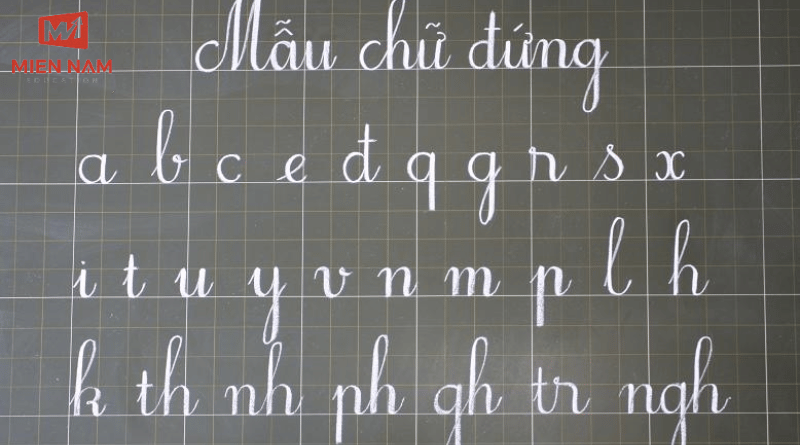 MIEN NAM
EDUCATION
Mẫu chữ đứng
a b c e đ q g r s x
i t u y v n m p l h
k th nh ph gh tr ngh